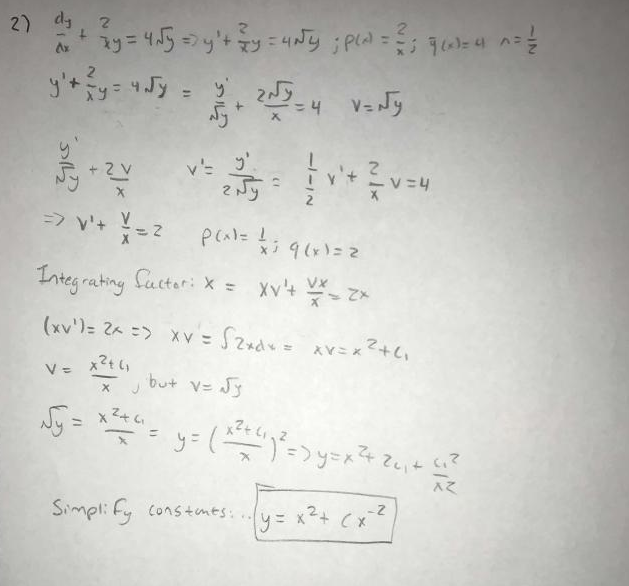 2) dy/dx + 2/x y = 4√y => y' + 2/x y = 4√y ; p(x) = 2/x ; q(x) = 4 n = 1/2
y' + 2/x y = 4√y = y'/√y + 2√y/x = 4 v = √y
y'/√y + 2v/x v' = y'/2√y = 1/(1/2) v' + 2/x v = 4
=> v' + v/x = 2 p(x) = 1/x ; q(x) = 2
Integrating factor: x = xv' + vx/x = 2x
(xv') = 2x => xv = ∫2xdx = xv = x² + c₁
v = (x² + c₁)/x , but v = √y
√y = (x² + c₁)/x = y = ((x² + c₁)/x)² => y = x² + 2c₁ + c₁²/x²
Simplify constants: .. y = x² + Cx⁻²